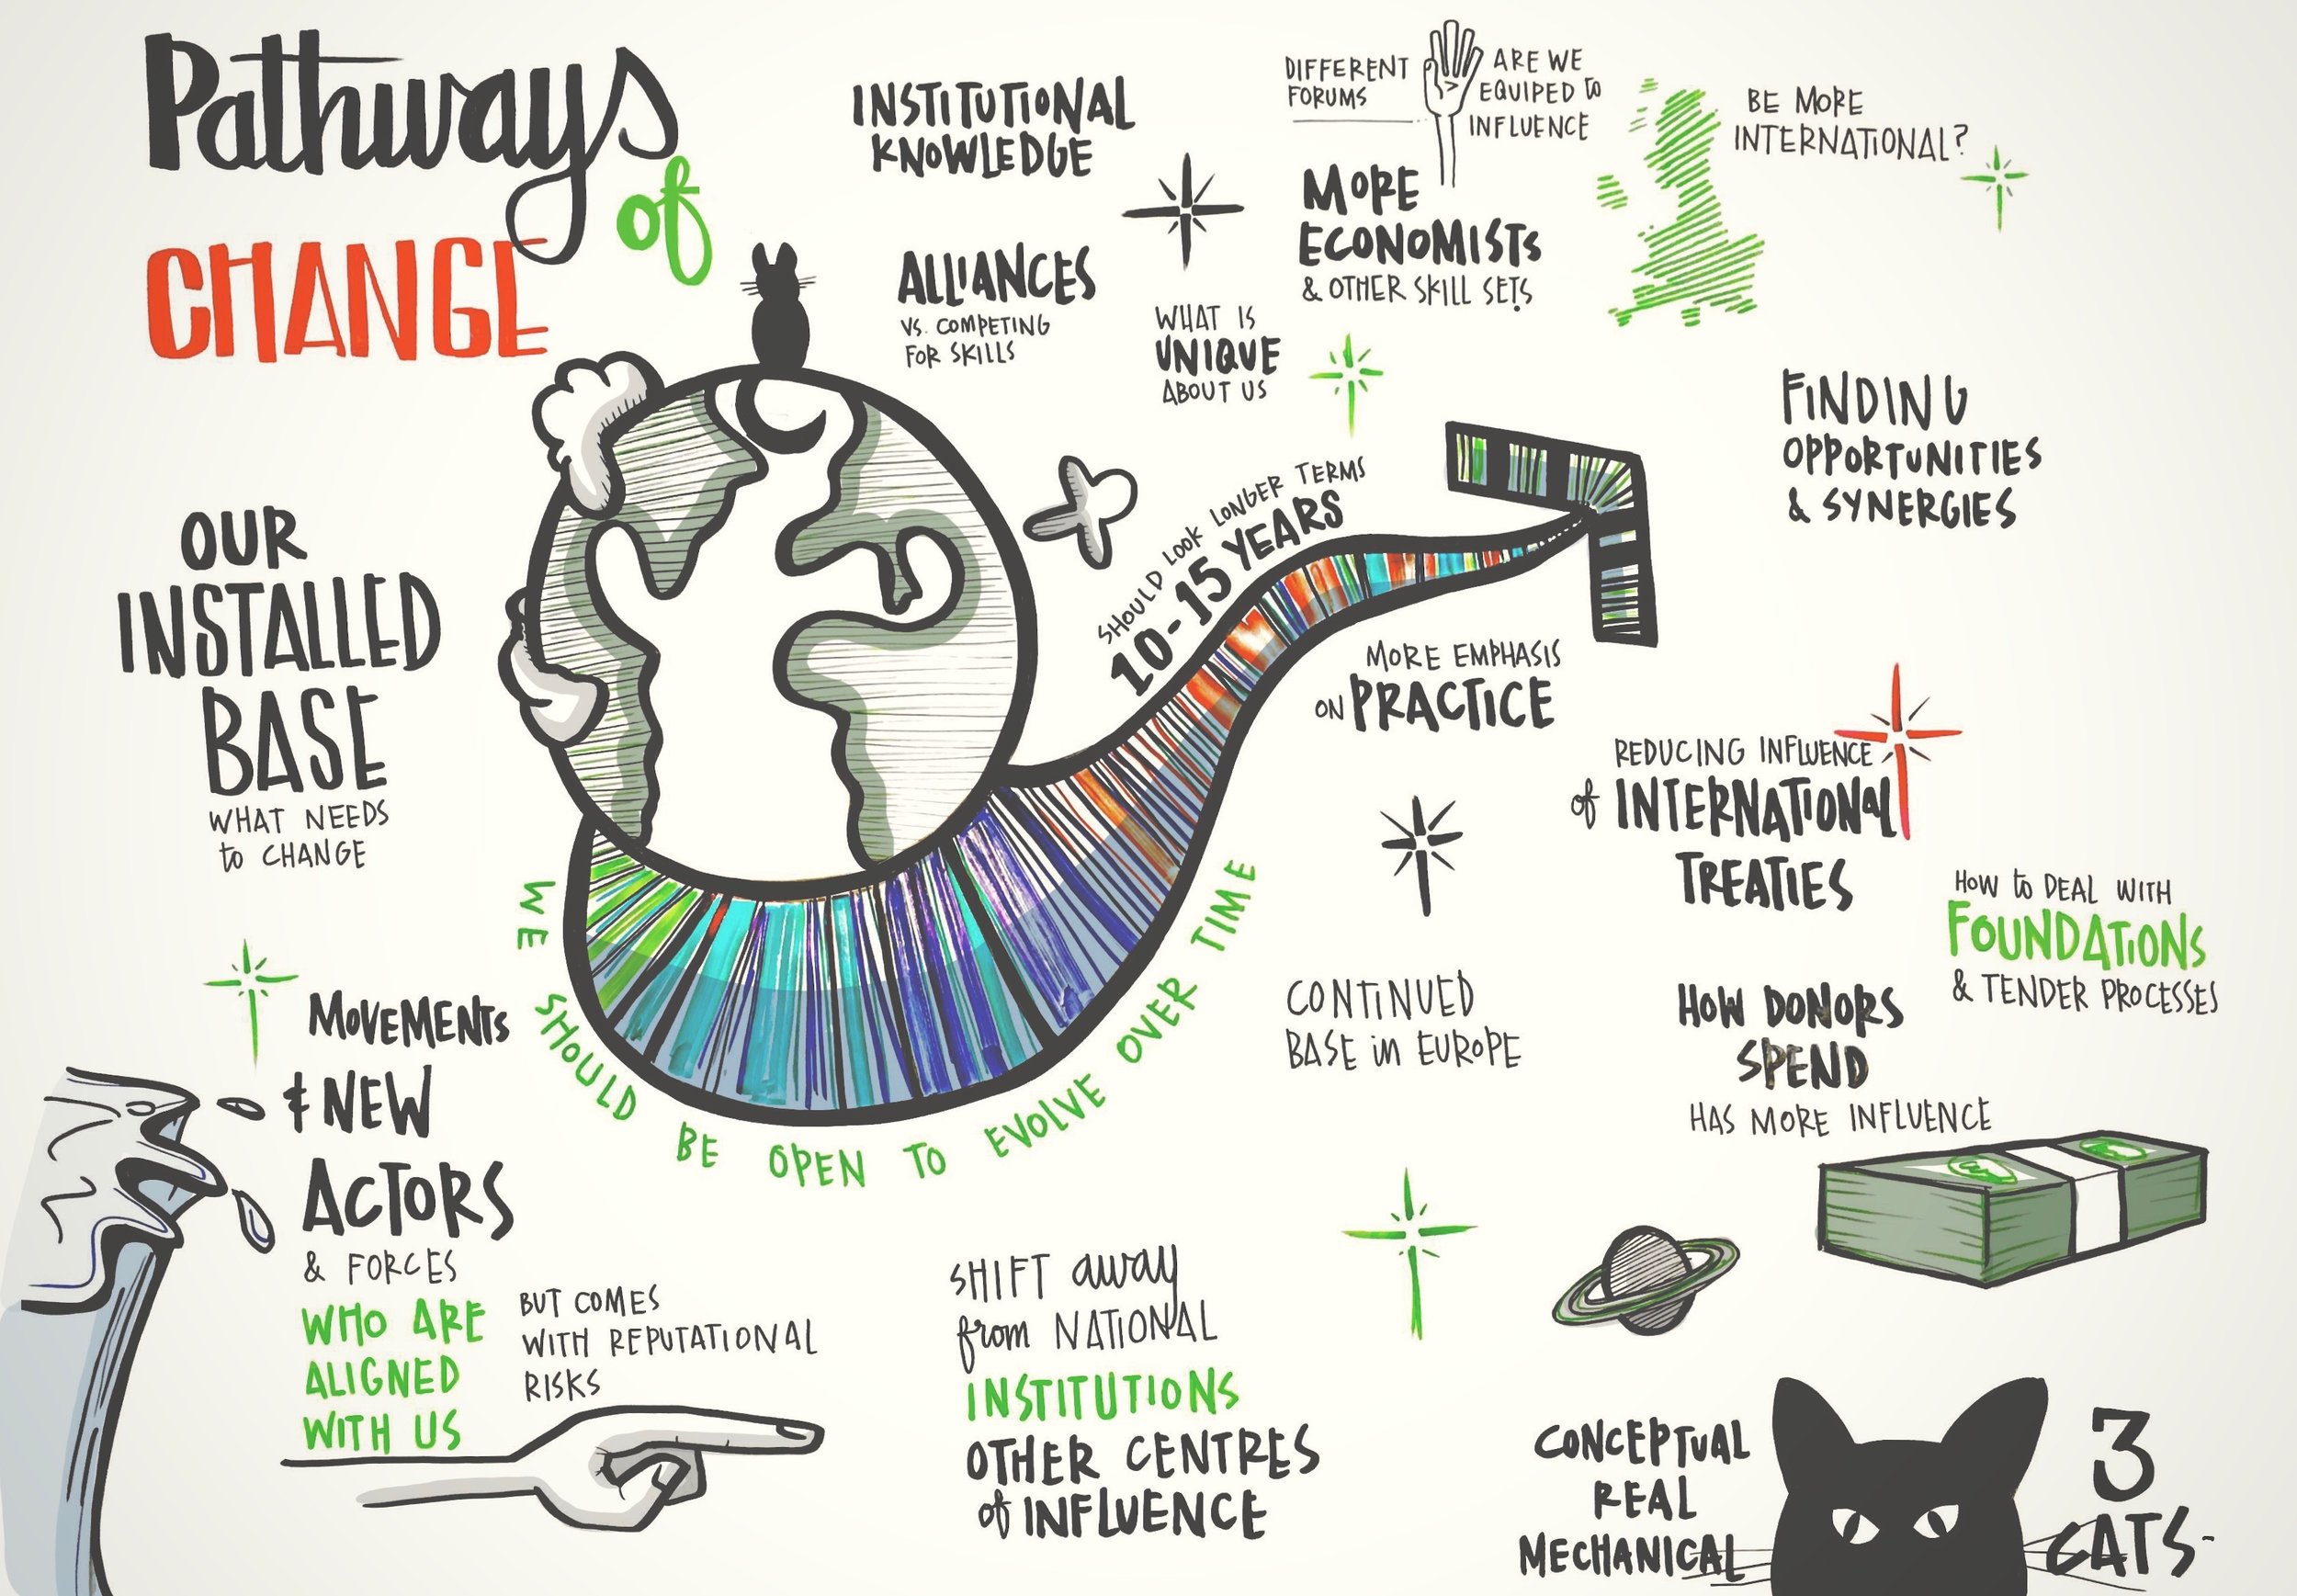 Pathways
of
CHANGE
INSTITUTIONAL
KNOWLEDGE
ALLIANCES
VS. COMPETING
FOR SKILLS
WHAT IS
UNIQUE
ABOUT US
DIFFERENT
FORUMS
ARE WE
EQUIPED to
INFLUENCE
MORE
ECONOMISTS
& OTHER SKILL SETS
BE MORE
INTERNATIONAL?
FINDING
OPPORTUNITIES
& SYNERGIES
OUR
INSTALLED
BASE
WHAT NEEDS
to CHANGE
SHOULD LOOK LONGER TERMS
10-15 YEARS
MORE EMPHASIS
ON PRACTICE
REDUCING INFLUENCE
of INTERNATIONAL
TREATIES
HOW to DEAL WITH
FOUNDATIONS
& TENDER PROCESSES
HOW DONORS
SPEND
HAS MORE INFLUENCE
CONTINUED
BASE in EUROPE
WE SHOULD BE OPEN TO EVOLVE OVER TIME
MOVEMENTS
& NEW
ACTORS
& FORCES
WHO ARE
ALIGNED
WITH US
BUT COMES
WITH REPUTATIONAL
RISKS
SHIFT away
from NATIONAL
INSTITUTIONS
OTHER CENTRES
of INFLUENCE
CONCEPTUAL
REAL
MECHANICAL
3
CATS-